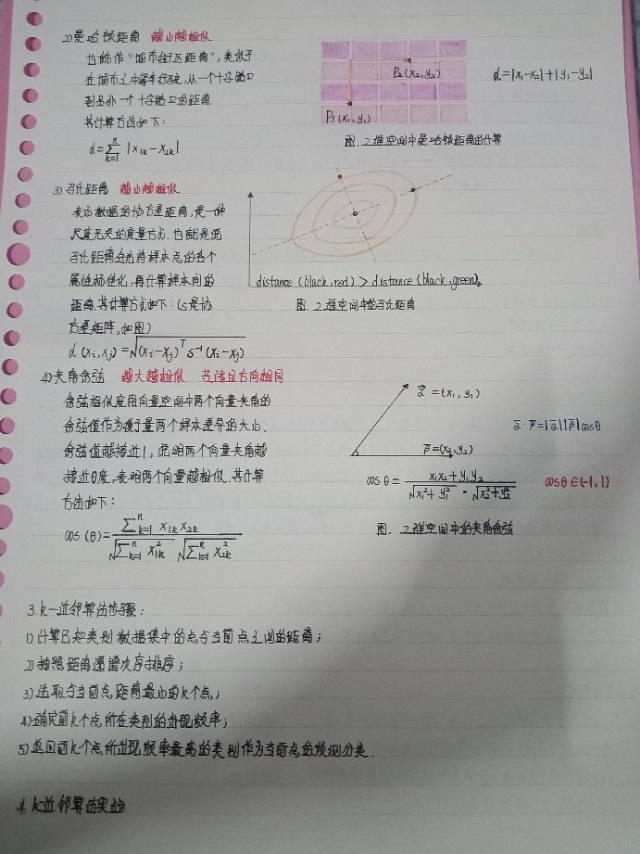 2)曼哈顿距离 越小越相似
也称作“城市街区距离”,类似于
在城市之中驾车行驶,从一个十字路口
到另外一个十字路口的距离
其计算方法如下:
d=∑ⁿₖ₌₁ |x₁ₖ-x₂ₖ|
P₂(x₂,y₂)
P₁(x₁,y₁)
d=|x₁-x₂|+|y₁-y₂|
图.2维空间中曼哈顿距离的计算
3)马氏距离 越小越相似
表示数据的协方差距离,是一种
尺度无关的度量方式.也就是说
马氏距离会先将样本点的各个
属性标准化,再计算样本间的
距离.其计算方式如下:(s是协
方差矩阵,如图)
d(xᵢ,xⱼ)=√(xᵢ-xⱼ)ᵀs⁻¹(xᵢ-xⱼ)
distance(black,red)>distance(black,green).
图.2维空间中的马氏距离
4)夹角余弦 越大越相似 共线且方向相同
余弦相似度用向量空间中两个向量夹角的
余弦值作为衡量两个样本差异的大小.
余弦值越接近1,说明两个向量夹角越
接近0度,表明两个向量越相似.其计算
方法如下:
cos(θ)=∑ⁿₖ₌₁ x₁ₖx₂ₖ / √∑ⁿₖ₌₁ x₁ₖ² √∑ⁿₖ₌₁ x₂ₖ²
α⃗=(x₁,y₁)
β⃗=(x₂,y₂)
α⃗·β⃗=|α⃗||β⃗|cosθ
cosθ= x₁x₂+y₁y₂ / √x₁²+y₁² · √x₂²+y₂²
cosθ∈(-1,1)
图.2维空间中的夹角余弦
3.k-近邻算法步骤:
1)计算已知类别数据集中的点与当前点之间的距离;
2)按照距离递增次序排序;
3)选取与当前点距离最小的k个点;
4)确定前k个点所在类别的出现频率;
5)返回前k个点所出现频率最高的类别作为当前点的预测分类.
4.k近邻算法实战